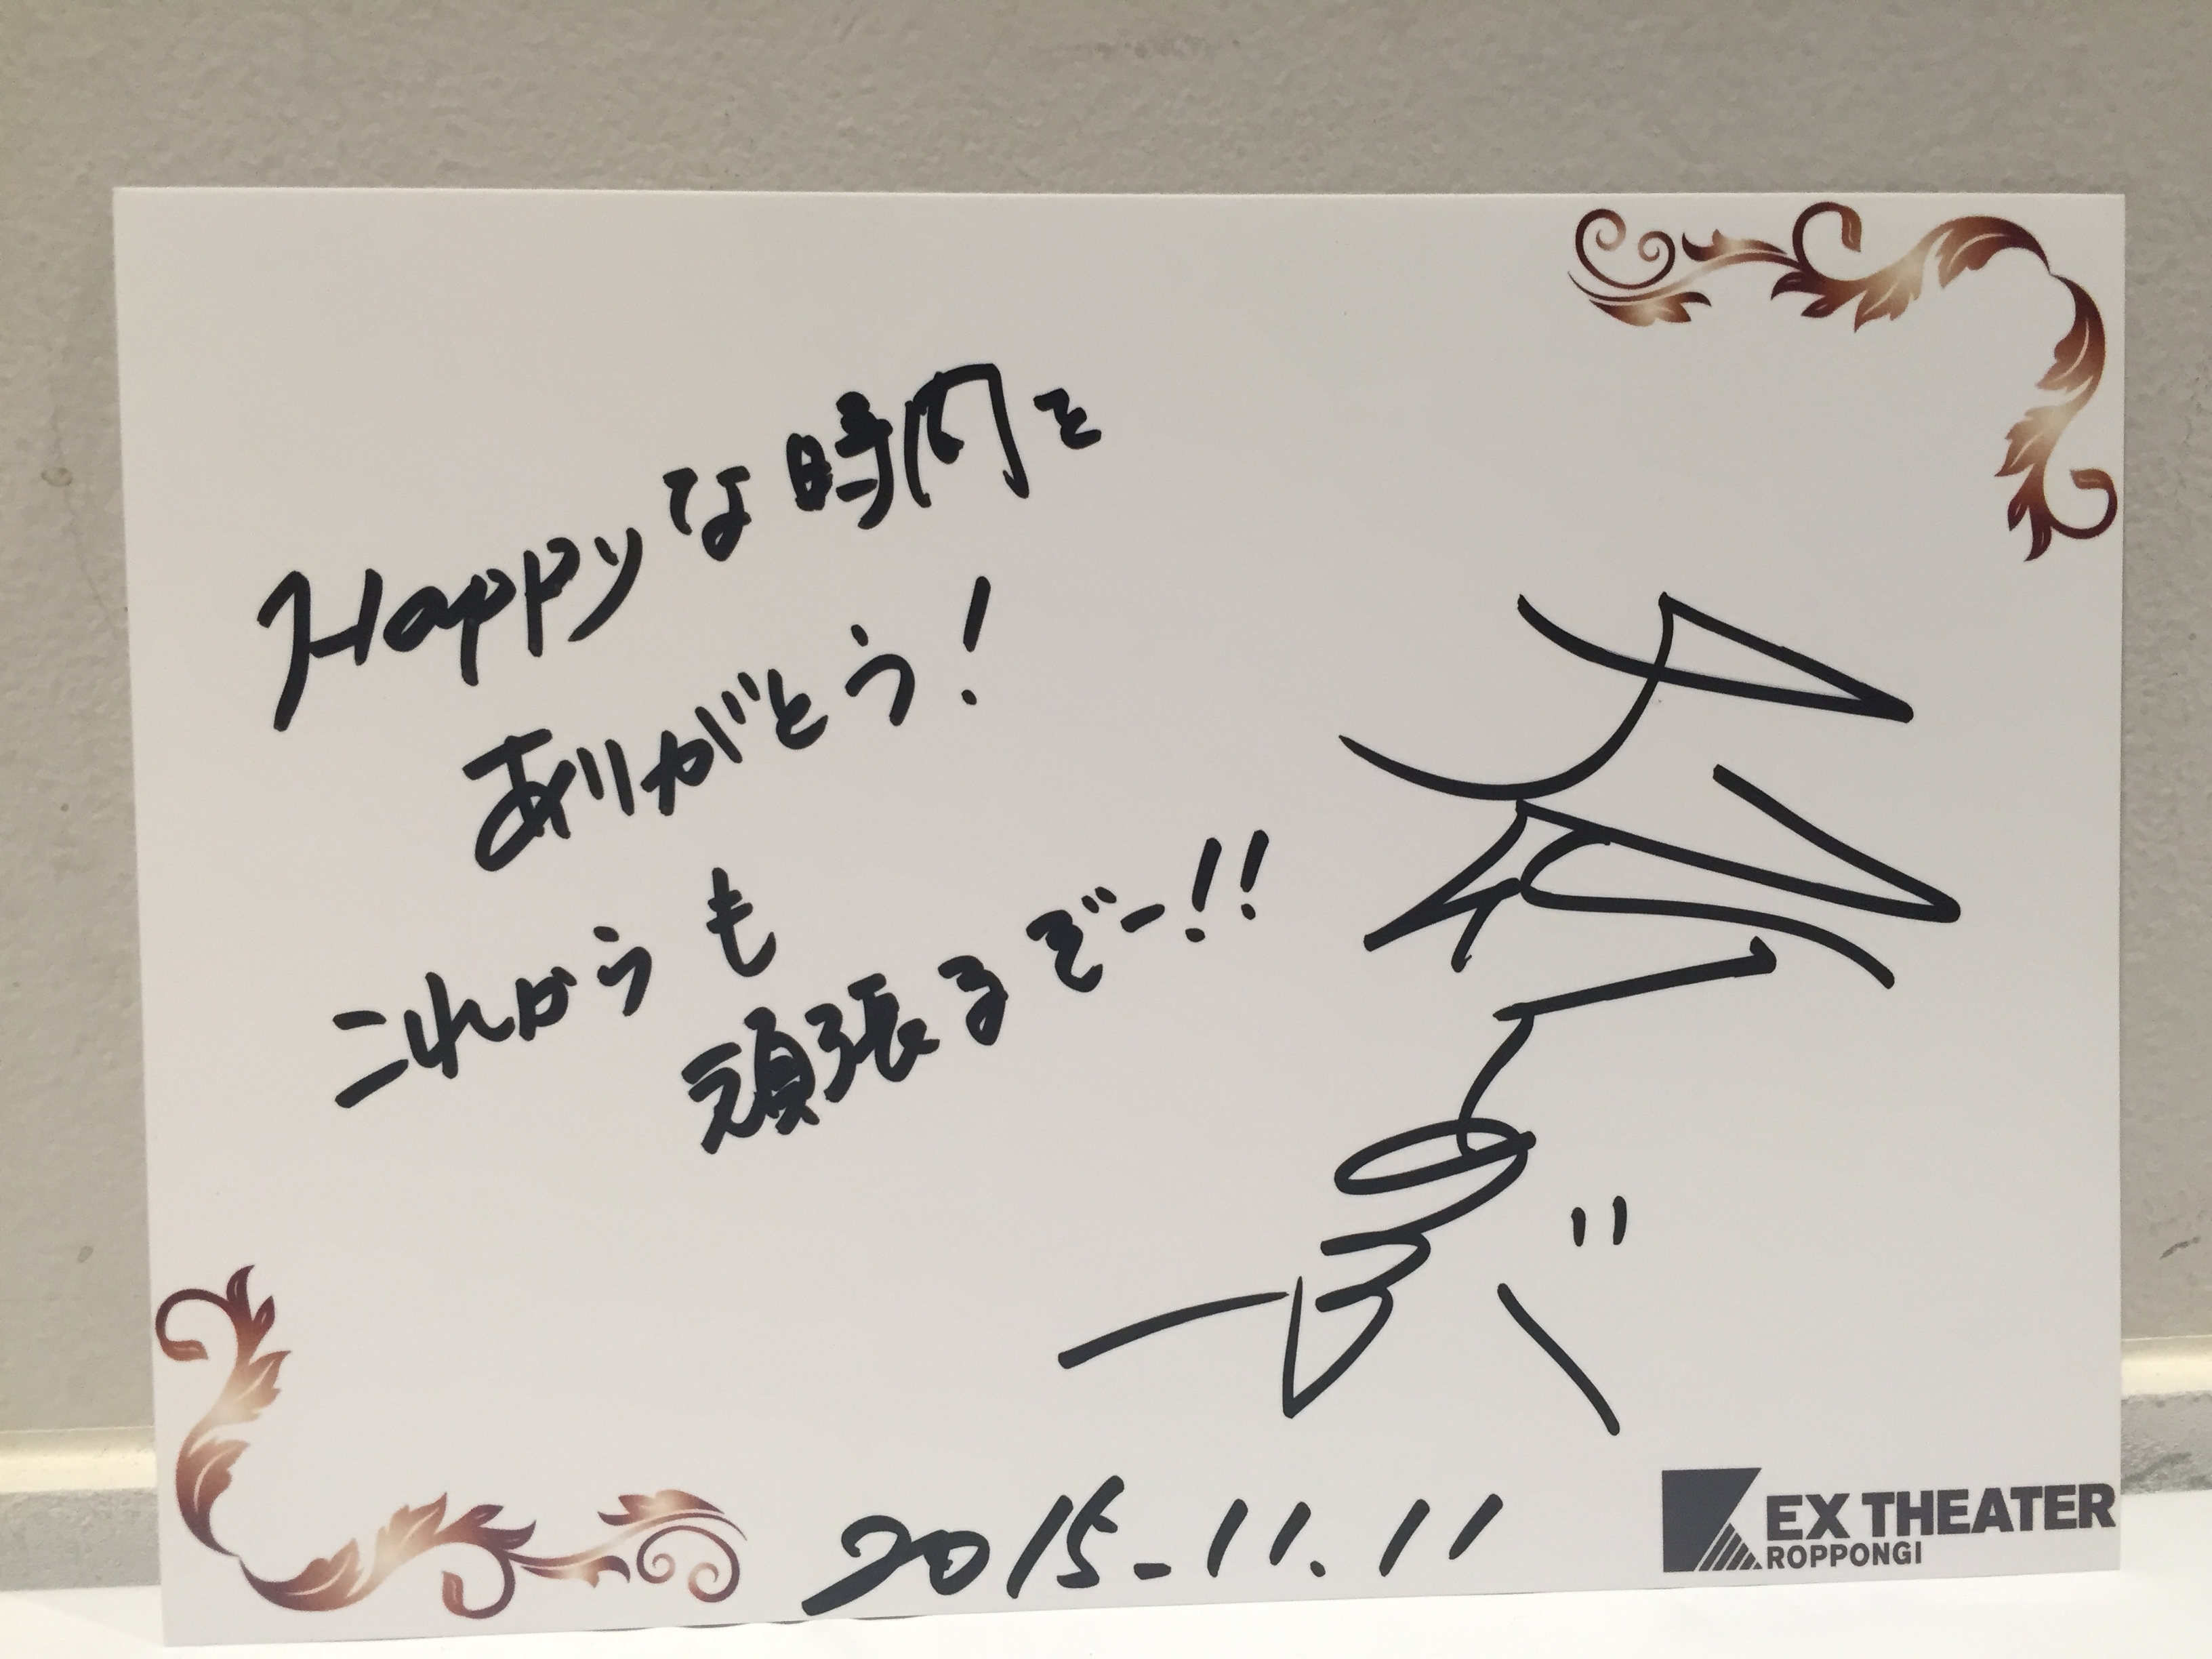 Happyな時間を
ありがとう!
これからも
頑張るぞー!!
2015-11.11
EX THEATER
ROPPONGI